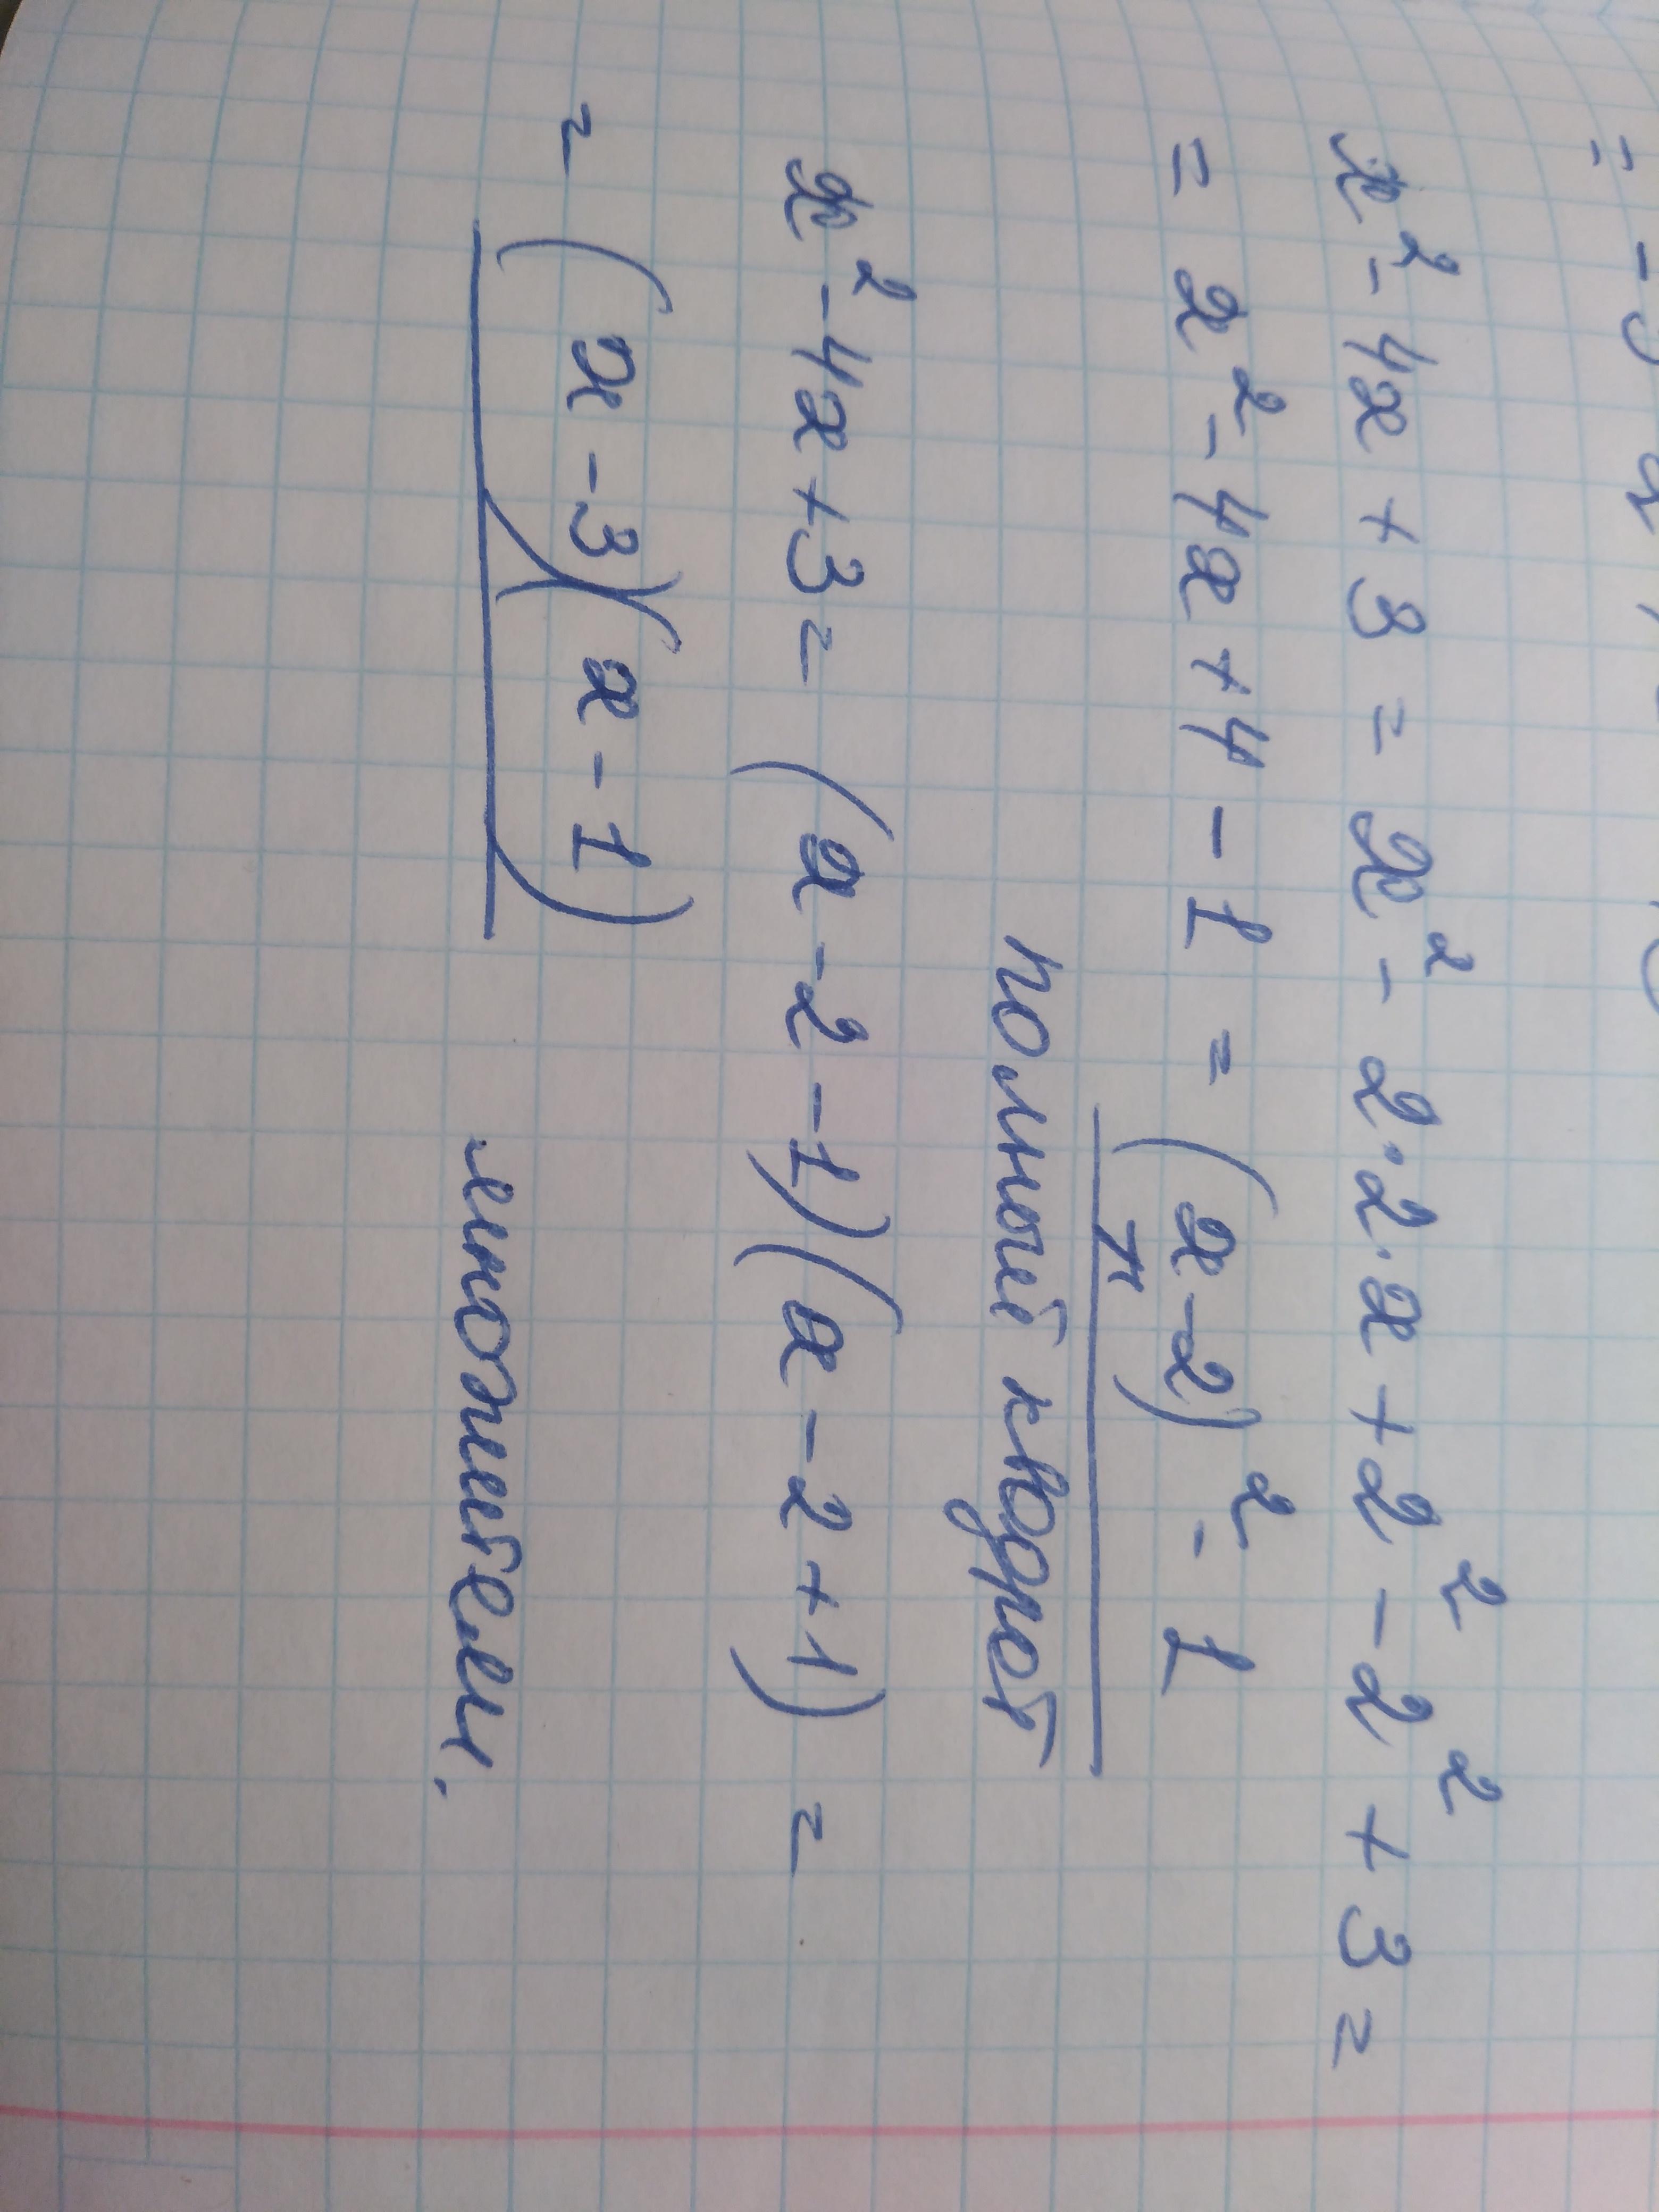 x² - 4x + 3 = x² - 2·2·x + 2² - 2² + 3 =
= x² - 4x + 4 - 1 = (x - 2)² - 1
полный квадрат
x² - 4x + 3 = (x - 2 - 1)(x - 2 + 1) =
= (x - 3)(x - 1) множители.